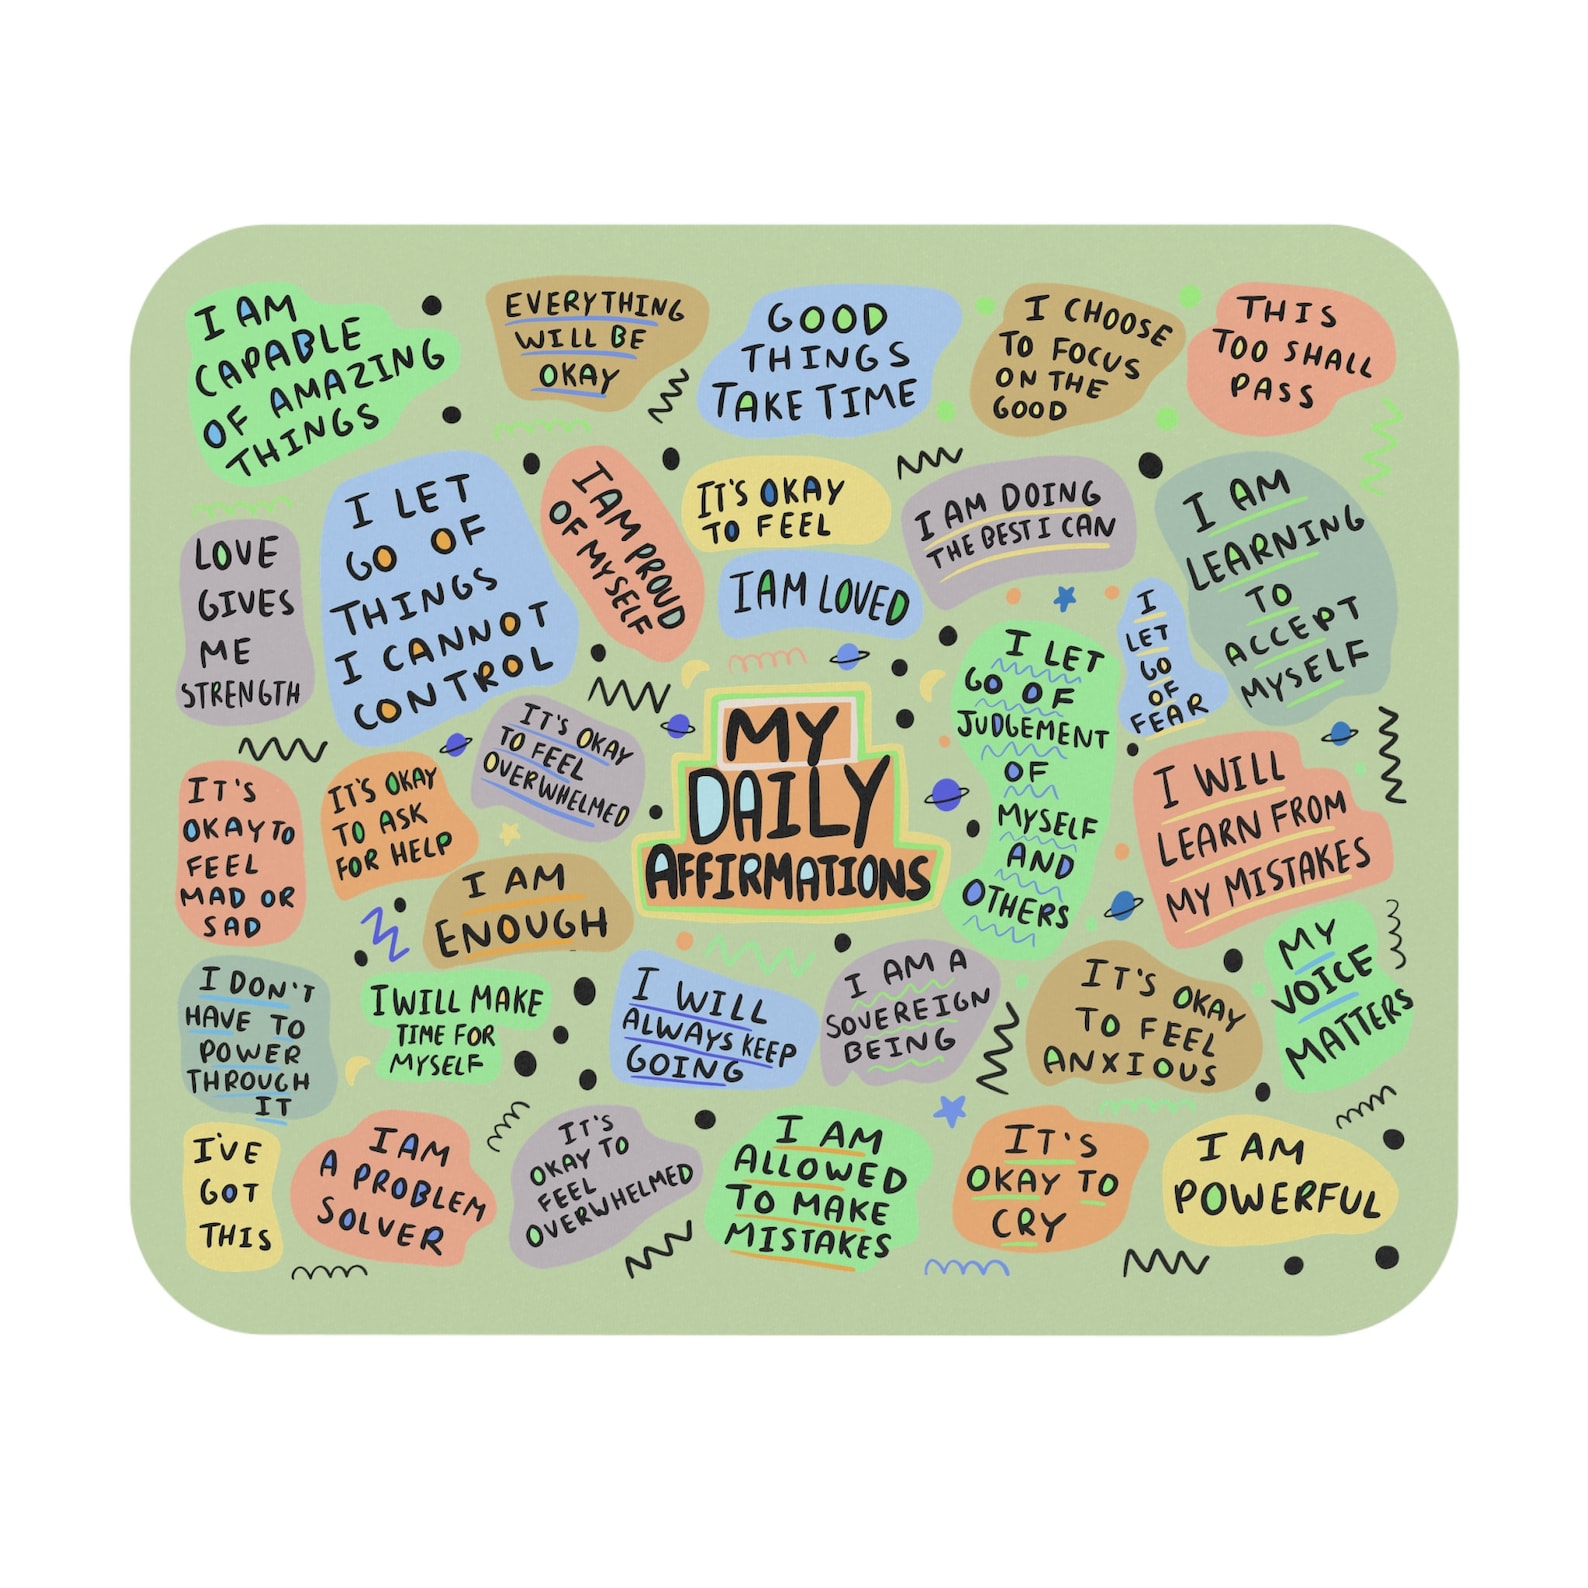 I AM
CAPABLE
OF AMAZING
THINGS
EVERYTHING
WILL BE
OKAY
GOOD
THINGS
TAKE TIME
I CHOOSE
TO FOCUS
ON THE
GOOD
THIS
TOO SHALL
PASS
LOVE
GIVES
ME
STRENGTH
I LET
GO OF
THINGS
I CANNOT
CONTROL
I AM PROUD
OF MYSELF
IT'S OKAY
TO FEEL
I AM LOVED
I AM DOING
THE BEST I CAN
I AM
LEARNING
TO
ACCEPT
MYSELF
I
LET
GO
OF
FEAR
I LET
GO OF
JUDGEMENT
OF
MYSELF
AND
OTHERS
IT'S OKAY
TO FEEL
OVERWHELMED
MY
DAILY
AFFIRMATIONS
IT'S
OKAY TO
FEEL
MAD OR
SAD
IT'S OKAY
TO ASK
FOR HELP
I AM
ENOUGH
I WILL
LEARN FROM
MY MISTAKES
I DON'T
HAVE TO
POWER
THROUGH
IT
I WILL MAKE
TIME FOR
MYSELF
I WILL
ALWAYS KEEP
GOING
I AM A
SOVEREIGN
BEING
IT'S OKAY
TO FEEL
ANXIOUS
MY
VOICE
MATTERS
I'VE
GOT
THIS
I AM
A PROBLEM
SOLVER
IT'S
OKAY TO
FEEL
OVERWHELMED
I AM
ALLOWED
TO MAKE
MISTAKES
IT'S
OKAY TO
CRY
I AM
POWERFUL